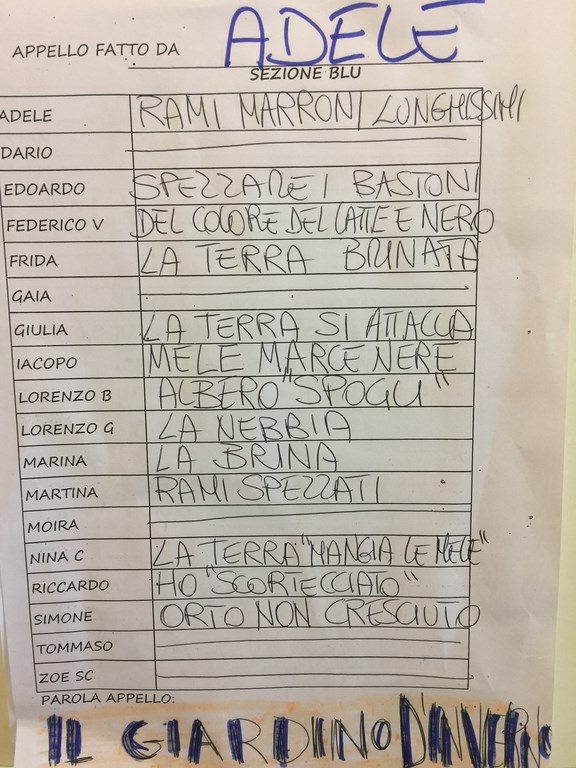 APPELLO FATTO DA ADELE
SEZIONE BLU
ADELE RAMI MARRONI LUNGHISSIMI
DARIO
EDOARDO SPEZZARE I BASTONI
FEDERICO V DEL COLORE DEL LATTE E NERO
FRIDA LA TERRA BRINATA
GAIA
GIULIA LA TERRA SI ATTACCA
IACOPO MELE MARCE NERE
LORENZO B ALBERO "SPOGLI"
LORENZO G LA NEBBIA
MARINA LA BRINA
MARTINA RAMI SPEZZATI
MOIRA
NINA C LA TERRA "MANGIA LE MELE"
RICCARDO HO "SCORTECCIATO"
SIMONE ORTO NON CRESCIUTO
TOMMASO
ZOE SC
PAROLA APPELLO:
IL GIARDINO D'INVERNO